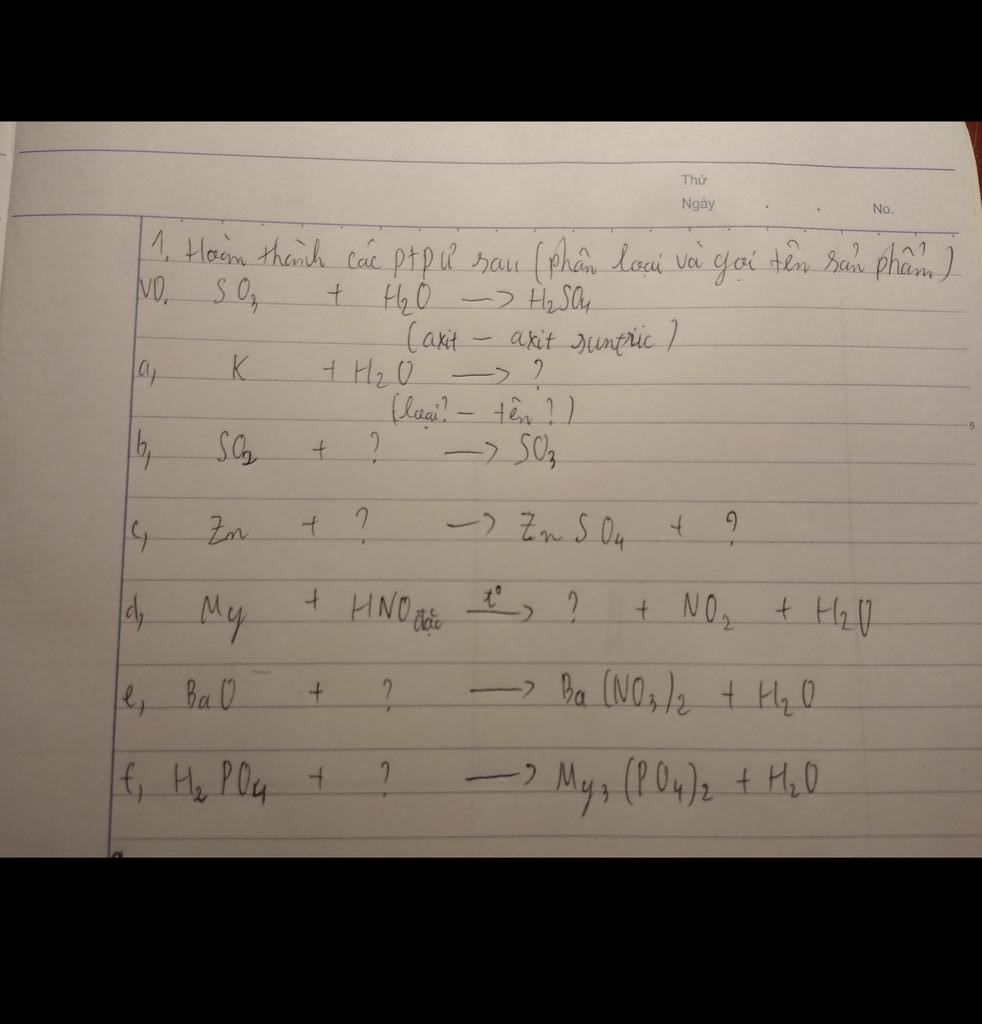 Thứ
Ngày . . No.
1. Hoàn thành các ptpứ sau (phân loại và gọi tên sản phẩm)
VD. SO3 + H2O → H2SO4
(axit - axit sunfuric)
a, K + H2O → ?
(loại? - tên?)
5
b, SO2 + ? → SO3
c, Zn + ? → ZnSO4 + ?
d, Mg + HNO đặc t° → ? + NO2 + H2O
e, BaO + ? → Ba(NO3)2 + H2O
f, H2PO4 + ? → Mg3(PO4)2 + H2O